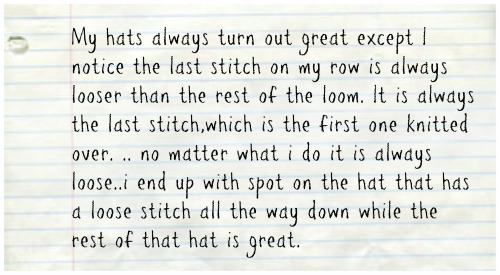 My hats always turn out great except I
notice the last stitch on my row is always
looser than the rest of the loom. It is always
the last stitch,which is the first one knitted
over. .. no matter what i do it is always
loose..i end up with spot on the hat that has
a loose stitch all the way down while the
rest of that hat is great.